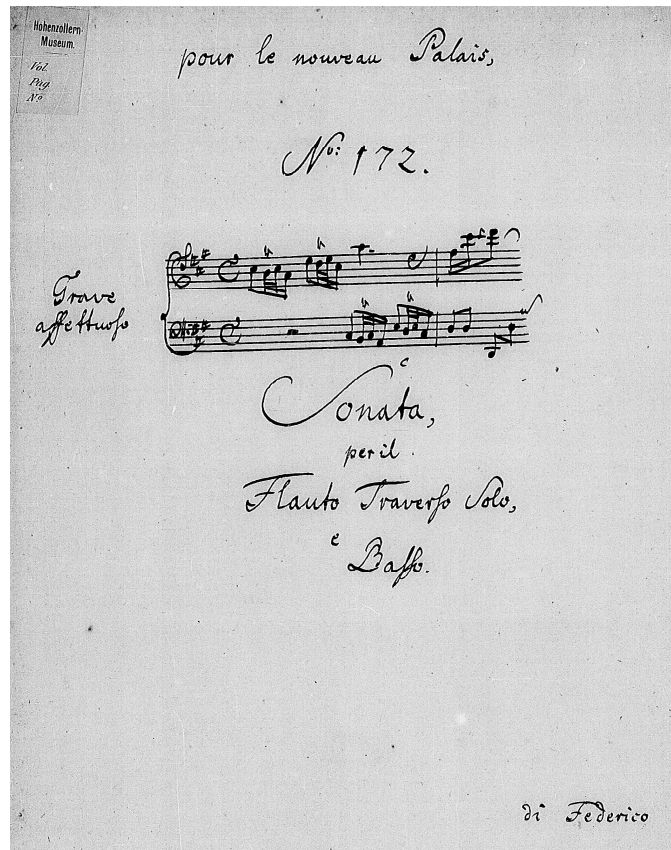 Hohenzollern-
Museum.
Vol.
Pag.
Nº
pour le nouveau Palais,
No: 172.
Grave
affettuoso
Sonata,
per il
Flauto Traverso Solo,
e
Basso.
di Federico